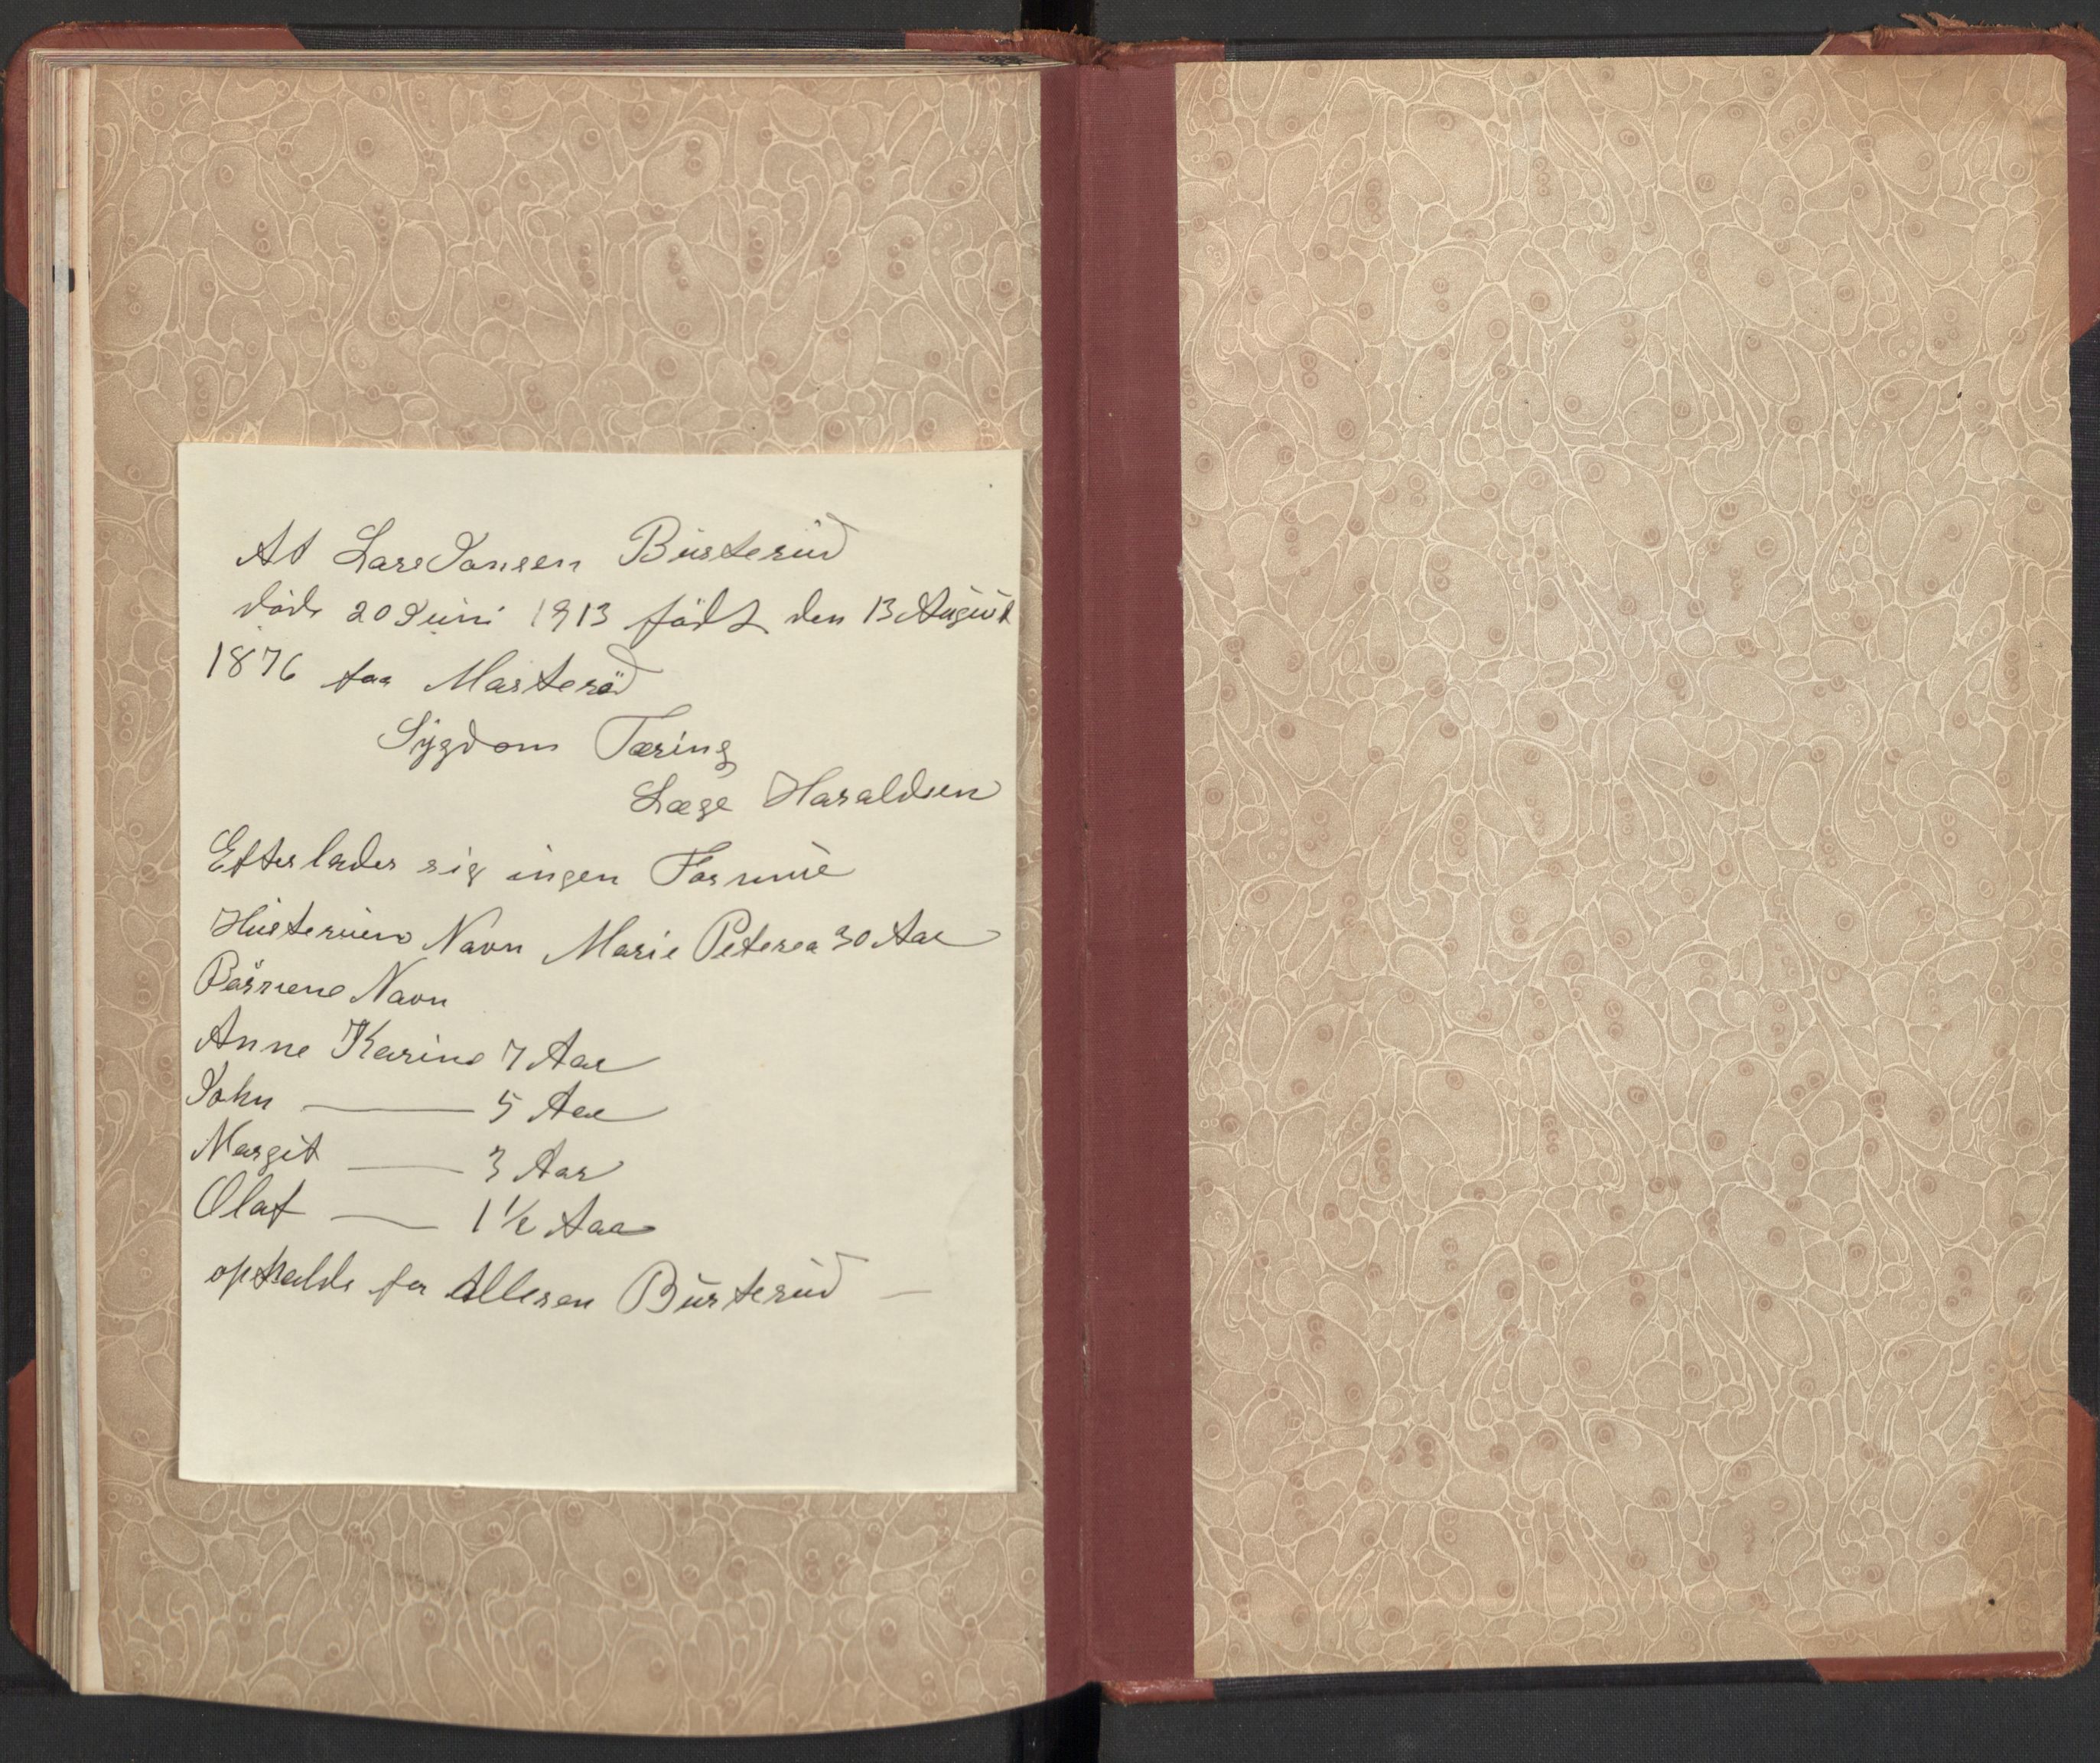 At Lars Jansen Busterud
døde 20 Juni 1913 født den 13 August
1876 paa Masterød
Sygdom Tæring
Læge Haraldsen
Efterlader sig ingen Formue
Hustruens Navn Marie Petrea 30 Aar
Børnene Navn
Anne Karine 7 Aar
John — 5 Aar
Margit — 3 Aar
Olaf — 1 ½ Aar
opholde for Busterud —